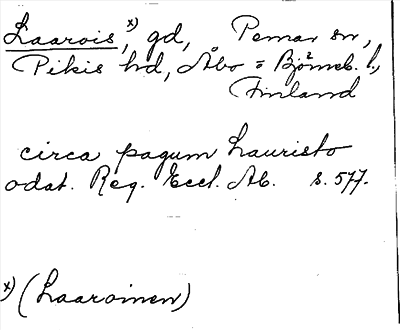 Laarois, x) gd, Pemar sn,
Pikis hd, Åbo = Björneb. l.,
Finland
circa pagum Lauristo
odat. Reg. Eccl. Ab. s. 577.
x) (Laaroinen)